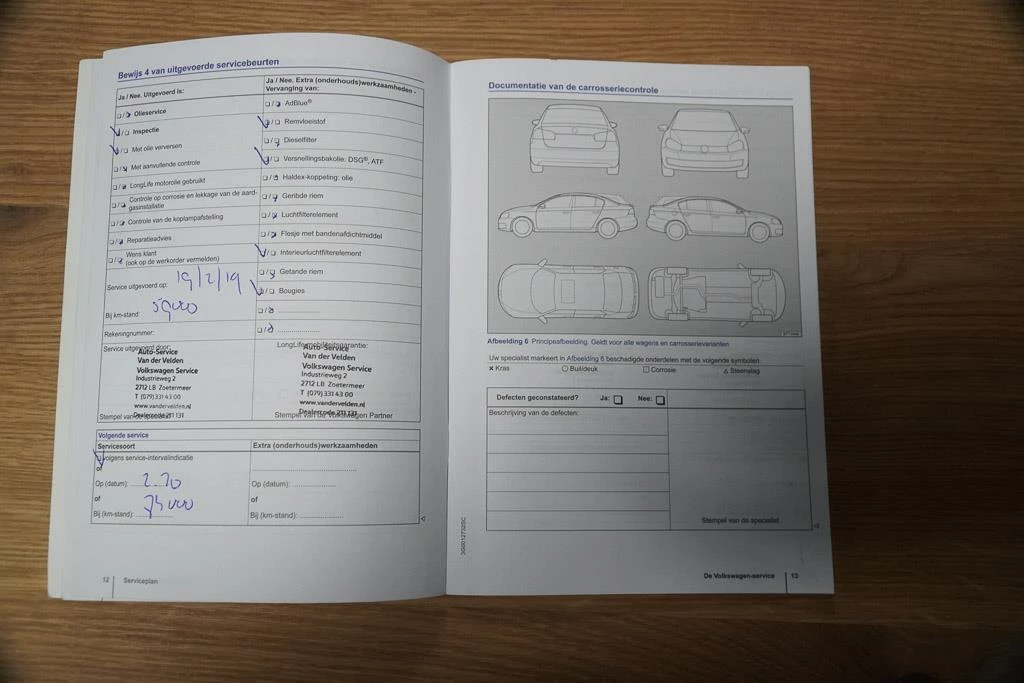 Bewijs 4 van uitgevoerde servicebeurten
Ja / Nee. Uitgevoerd is:
Olieservice
Inspectie
Met olie verversen
Met aanvullende controle
LongLife motorolie gebruikt
Controle op corrosie en lekkage van de aard-
gasinstallatie
Controle van de koplampafstelling
Reparatieadvies
Wens klant
(ook op de werkorder vermelden)
Service uitgevoerd op: 19/2/19
Bij km-stand: 59000
Rekeningnummer:
Service uitgevoerd door:
Auto-Service
Van der Velden
Volkswagen Service
Industrieweg 2
2712 LB Zoetermeer
T (079) 331 43 00
www.vandervelden.nl
Dealercode 211 131
Ja / Nee. Extra (onderhouds)werkzaamheden -
Vervanging van:
AdBlue®
Remvloeistof
Dieselfilter
Versnellingsbakolie: DSG®, ATF
Haldex-koppeling: olie
Geribde riem
Luchtfilterelement
Flesje met bandenafdichtmiddel
Interieurluchtfilterelement
Getande riem
Bougies
LongLife-mobiliteitsgarantie:
Auto-Service
Van der Velden
Volkswagen Service
Industrieweg 2
2712 LB Zoetermeer
T (079) 331 43 00
www.vandervelden.nl
Dealercode 211 131
Stempel van de Volkswagen Partner
Volgende service
Servicesoort
volgens service-intervalindicatie
of
Op (datum): 2-20
of
Bij (km-stand): 74000
Extra (onderhouds)werkzaamheden
Op (datum):
of
Bij (km-stand):
12 Serviceplan
Documentatie van de carrosseriecontrole
Afbeelding 6 Principeafbeelding. Geldt voor alle wagens en carrosserievarianten
Uw specialist markeert in Afbeelding 6 beschadigde onderdelen met de volgende symbolen:
× Kras ○ Buil/deuk □ Corrosie △ Steenslag
Defecten geconstateerd? Ja: Nee:
Beschrijving van de defecten:
Stempel van de specialist
3G0012732SC
De Volkswagen-service 13